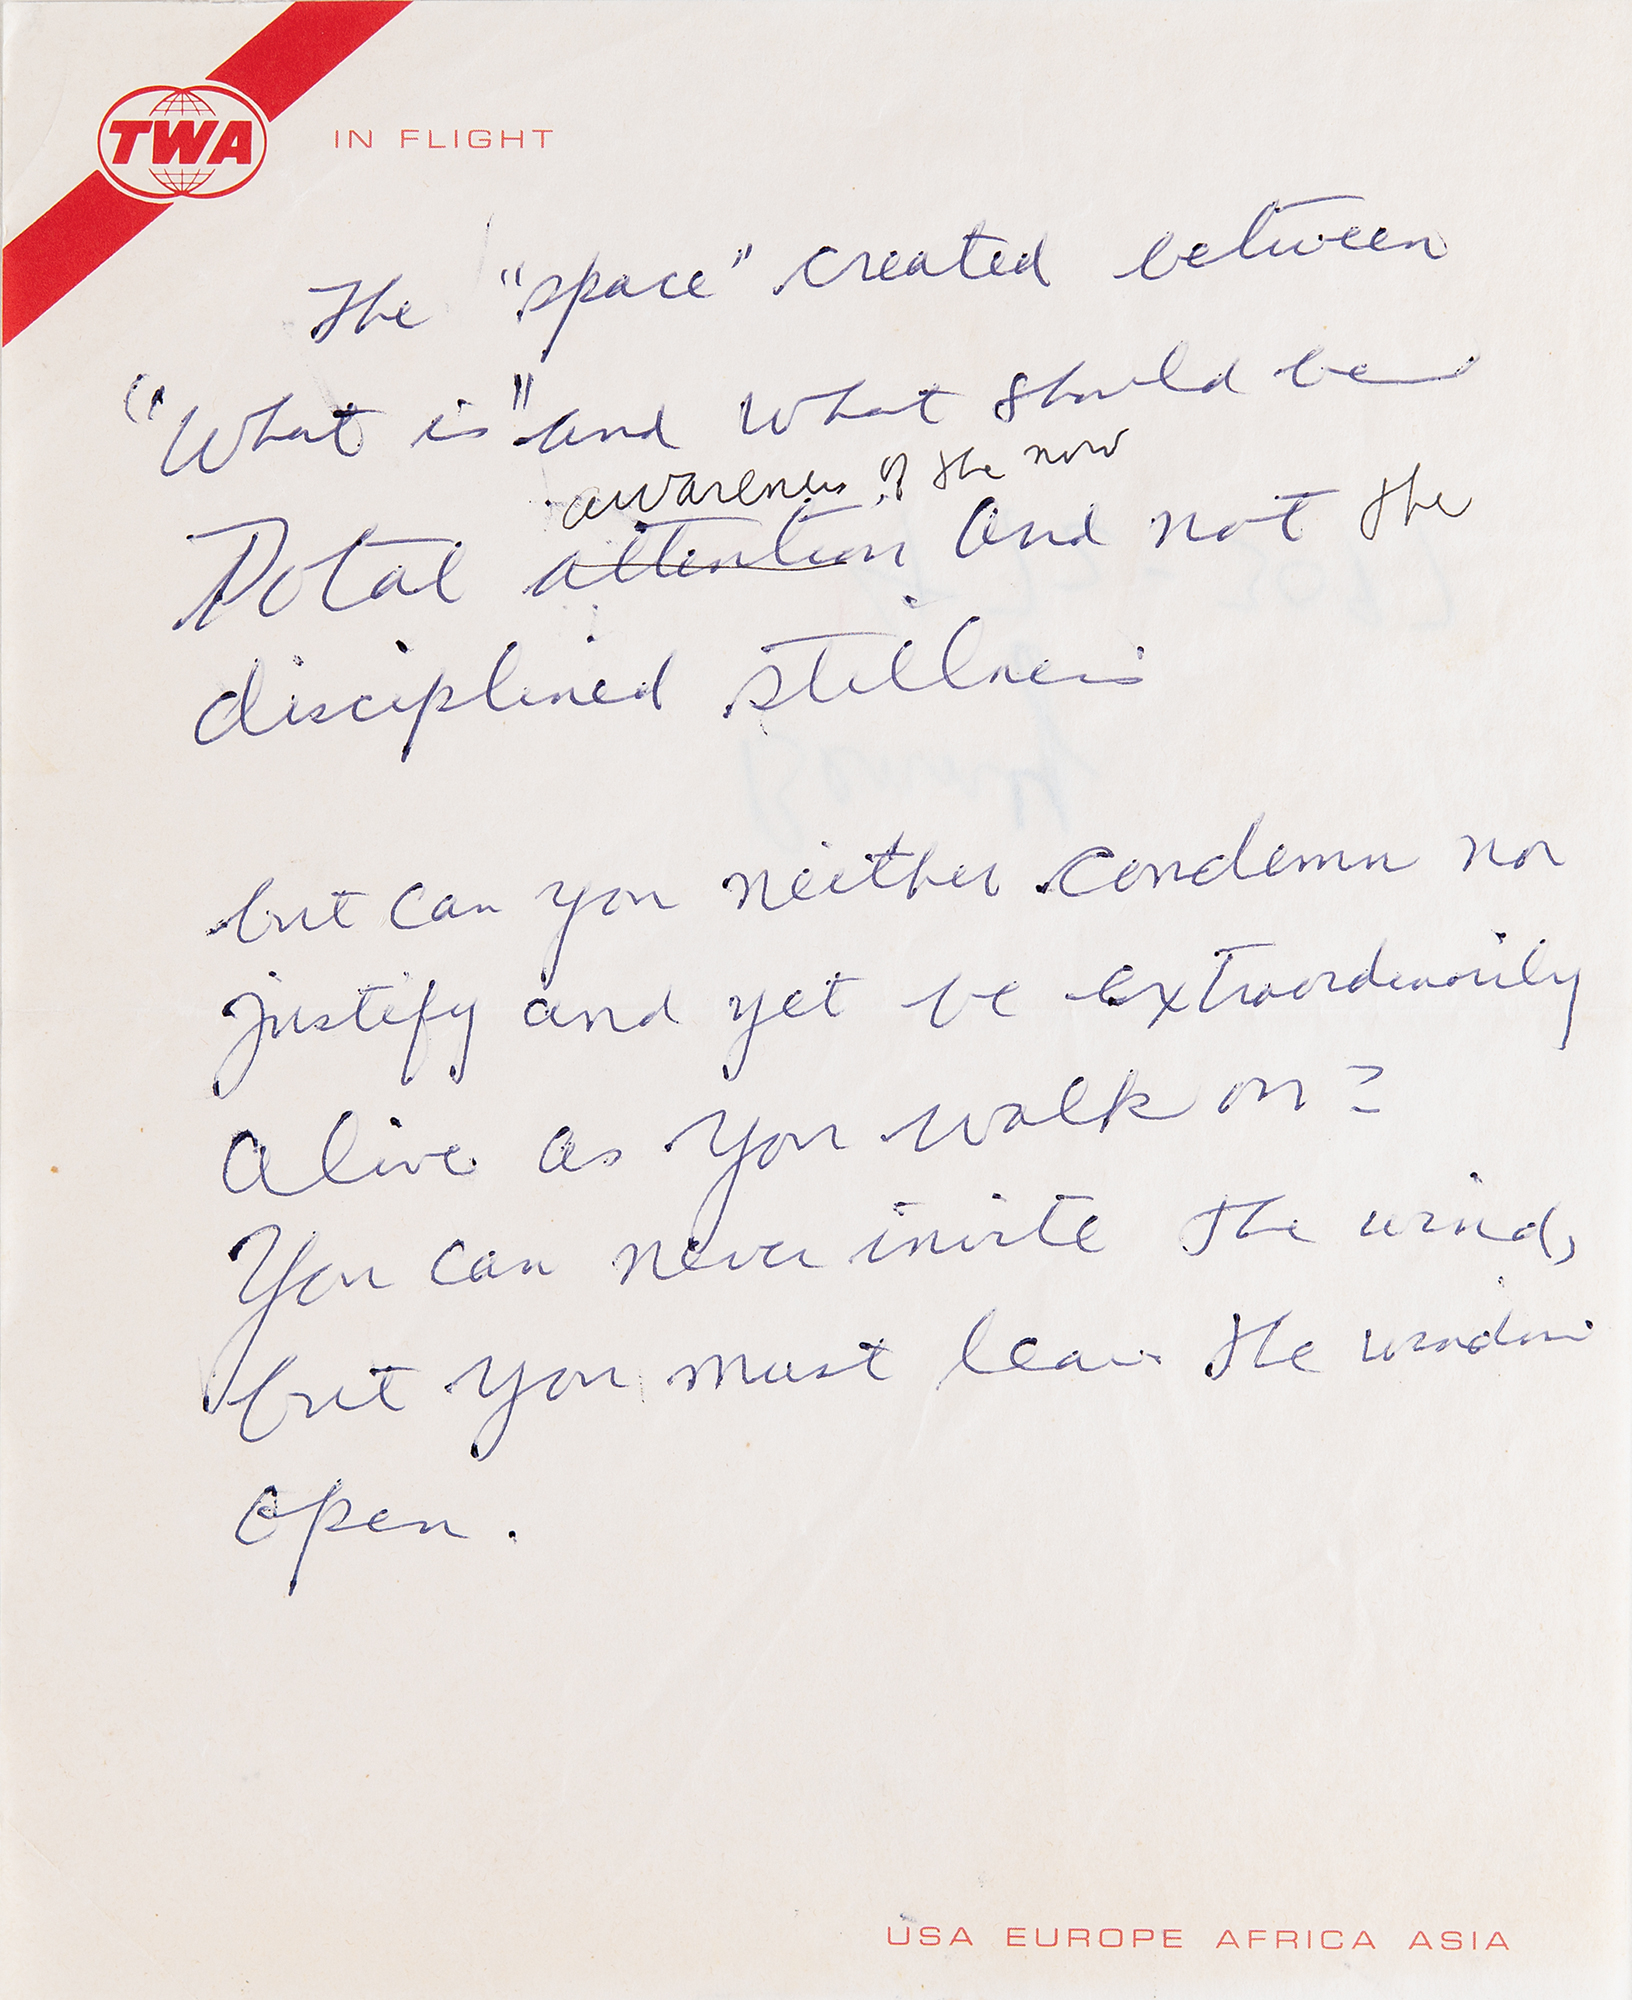 TWA IN FLIGHT
The "space" created between
"What is" and what should be
awareness of the now
Total attention and not the
disciplined stillness
but can you neither condemn nor
justify and yet be extraordinarily
alive as you walk on?
You can never invite the wind,
but you must leave the window
open.
USA EUROPE AFRICA ASIA